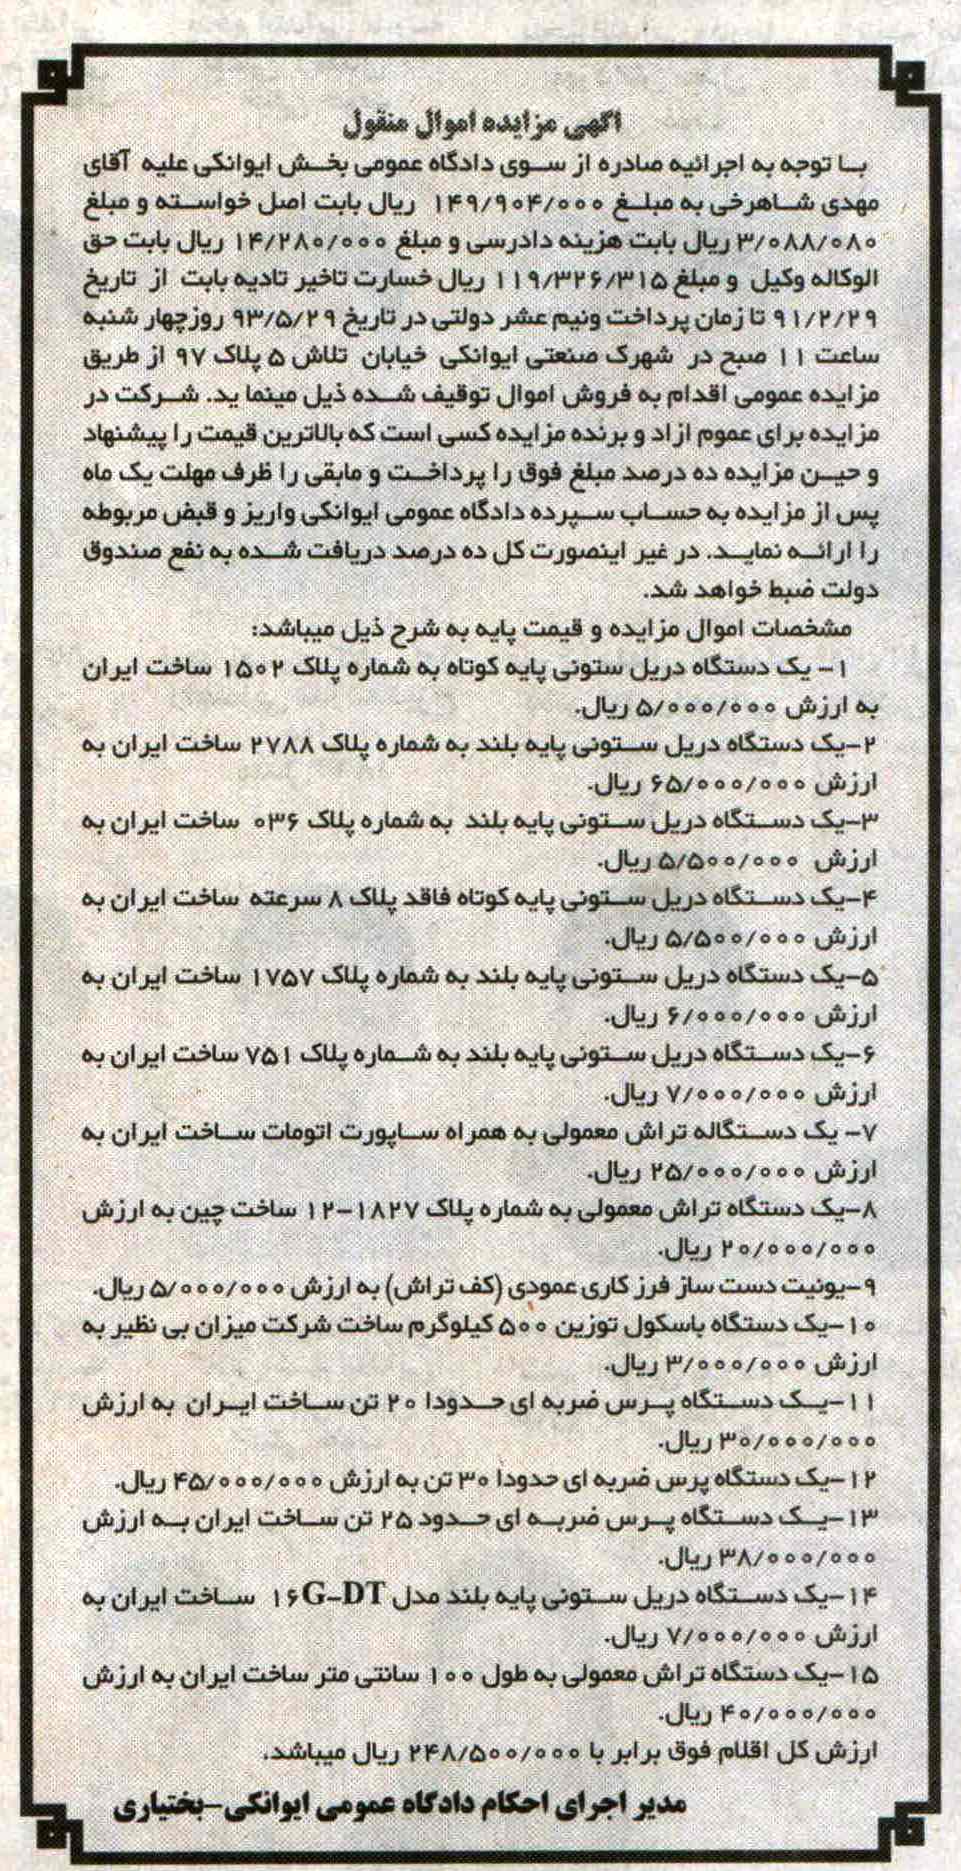 اگهی مزایده اموال منقول
بـا توجه به اجرائیه صادره از سـوی دادگاه عمومی بخـش ایوانکی علیه آقای
مهدی شـاهرخی به مبلـغ ۱۴۹/۹۰۴/۰۰۰ ریال بابت اصل خواسـته و مبلغ
۳/۰۸۸/۰۸۰ ریال بابت هزینه دادرسی و مبلغ ۱۴/۲۸۰/۰۰۰ ریال بابت حق
الوکاله وکیل و مبلغ ۱۱۹/۳۲۶/۳۱۵ ریال خسارت تاخیر تادیه بابت از تاریخ
۹۱/۲/۲۹ تا زمان پرداخت ونیم عشر دولتی در تاریخ ۹۳/۵/۲۹ روزچهار شنبه
ساعت ۱۱ صبح در شهرک صنعتی ایوانکی خیابان تلاش ۵ پلاک ۹۷ از طریق
مزایده عمومی اقدام به فروش اموال توقیف شـده ذیل مینما ید. شـرکت در
مزایده برای عموم ازاد و برنده مزایده کسی است که بالاترین قیمت را پیشنهاد
و حیـن مزایده ده درصد مبلغ فوق را پرداخـت و مابقی را ظرف مهلت یک ماه
پس از مزایده به حساب سـپرده دادگاه عمومی ایوانکی واریز و قبض مربوطه
را ارائـه نمایـد. در غیر اینصورت کل ده درصد دریافت شـده به نفع صندوق
دولت ضبط خواهد شد.
مشخصات اموال مزایده و قیمت پایه به شرح ذیل میباشد:
۱- یک دستگاه دریل ستونی پایه کوتاه به شماره پلاک ۱۵۰۲ ساخت ایران
به ارزش ۵/۰۰۰/۰۰۰ ریال.
۲-یک دستگاه دریل سـتونی پایه بلند به شماره پلاک ۲۷۸۸ ساخت ایران به
ارزش ۶۵/۰۰۰/۰۰۰ ریال.
۳-یک دسـتگاه دریل سـتونی پایه بلند به شماره پلاک ۰۳۶ ساخت ایران به
ارزش ۵/۵۰۰/۰۰۰ ریال.
۴-یک دسـتگاه دریل سـتونی پایه کوتاه فاقد پلاک ۸ سرعته ساخت ایران به
ارزش ۵/۵۰۰/۰۰۰ ریال.
۵-یک دستگاه دریل سـتونی پایه بلند به شماره پلاک ۱۷۵۷ ساخت ایران به
ارزش ۶/۰۰۰/۰۰۰ ریال.
۶-یک دسـتگاه دریل سـتونی پایه بلند به شـماره پلاک ۷۵۱ ساخت ایران به
ارزش ۷/۰۰۰/۰۰۰ ریال.
۷- یک دسـتگاله تراش معمولی به همراه سـاپورت اتومات سـاخت ایران به
ارزش ۲۵/۰۰۰/۰۰۰ ریال.
۸-یک دستگاه تراش معمولی به شماره پلاک ۱۸۲۷-۱۲ ساخت چین به ارزش
۲۰/۰۰۰/۰۰۰ ریال.
۹-یونیت دست ساز فرز کاری عمودی (کف تراش) به ارزش ۵/۰۰۰/۰۰۰ ریال.
۱۰-یک دستگاه باسکول توزین ۵۰۰ کیلوگرم ساخت شرکت میزان بی نظیر به
ارزش ۳/۰۰۰/۰۰۰ ریال.
۱۱-یـک دسـتگاه پـرس ضربه ای حـدودا ۲۰ تن سـاخت ایـران به ارزش
۳۰/۰۰۰/۰۰۰ ریال.
۱۲-یک دستگاه پرس ضربه ای حدودا ۳۰ تن به ارزش ۴۵/۰۰۰/۰۰۰ ریال.
۱۳-یـک دسـتگاه پـرس ضربـه ای حـدود ۲۵ تن سـاخت ایران بـه ارزش
۳۸/۰۰۰/۰۰۰ ریال.
۱۴-یک دستگاه دریل سـتونی پایه بلند مدل ۱۶G-DT سـاخت ایران به
ارزش ۷/۰۰۰/۰۰۰ ریال.
۱۵-یک دستگاه تراش معمولی به طول ۱۰۰ سانتی متر ساخت ایران به ارزش
۴۰/۰۰۰/۰۰۰ ریال.
ارزش کل اقلام فوق برابر با ۲۴۸/۵۰۰/۰۰۰ ریال میباشد.
مدیر اجرای احکام دادگاه عمومی ایوانکی-بختیاری